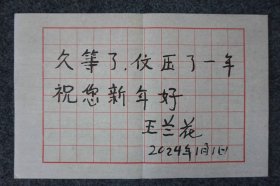 久等了，仅压了一年
祝您新年好
王兰花
2024年1月1日